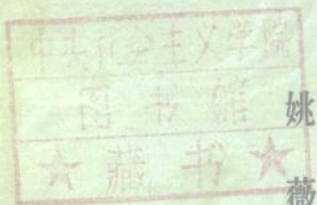 中共社会主义学院
图书馆
★藏书★
姚
薇